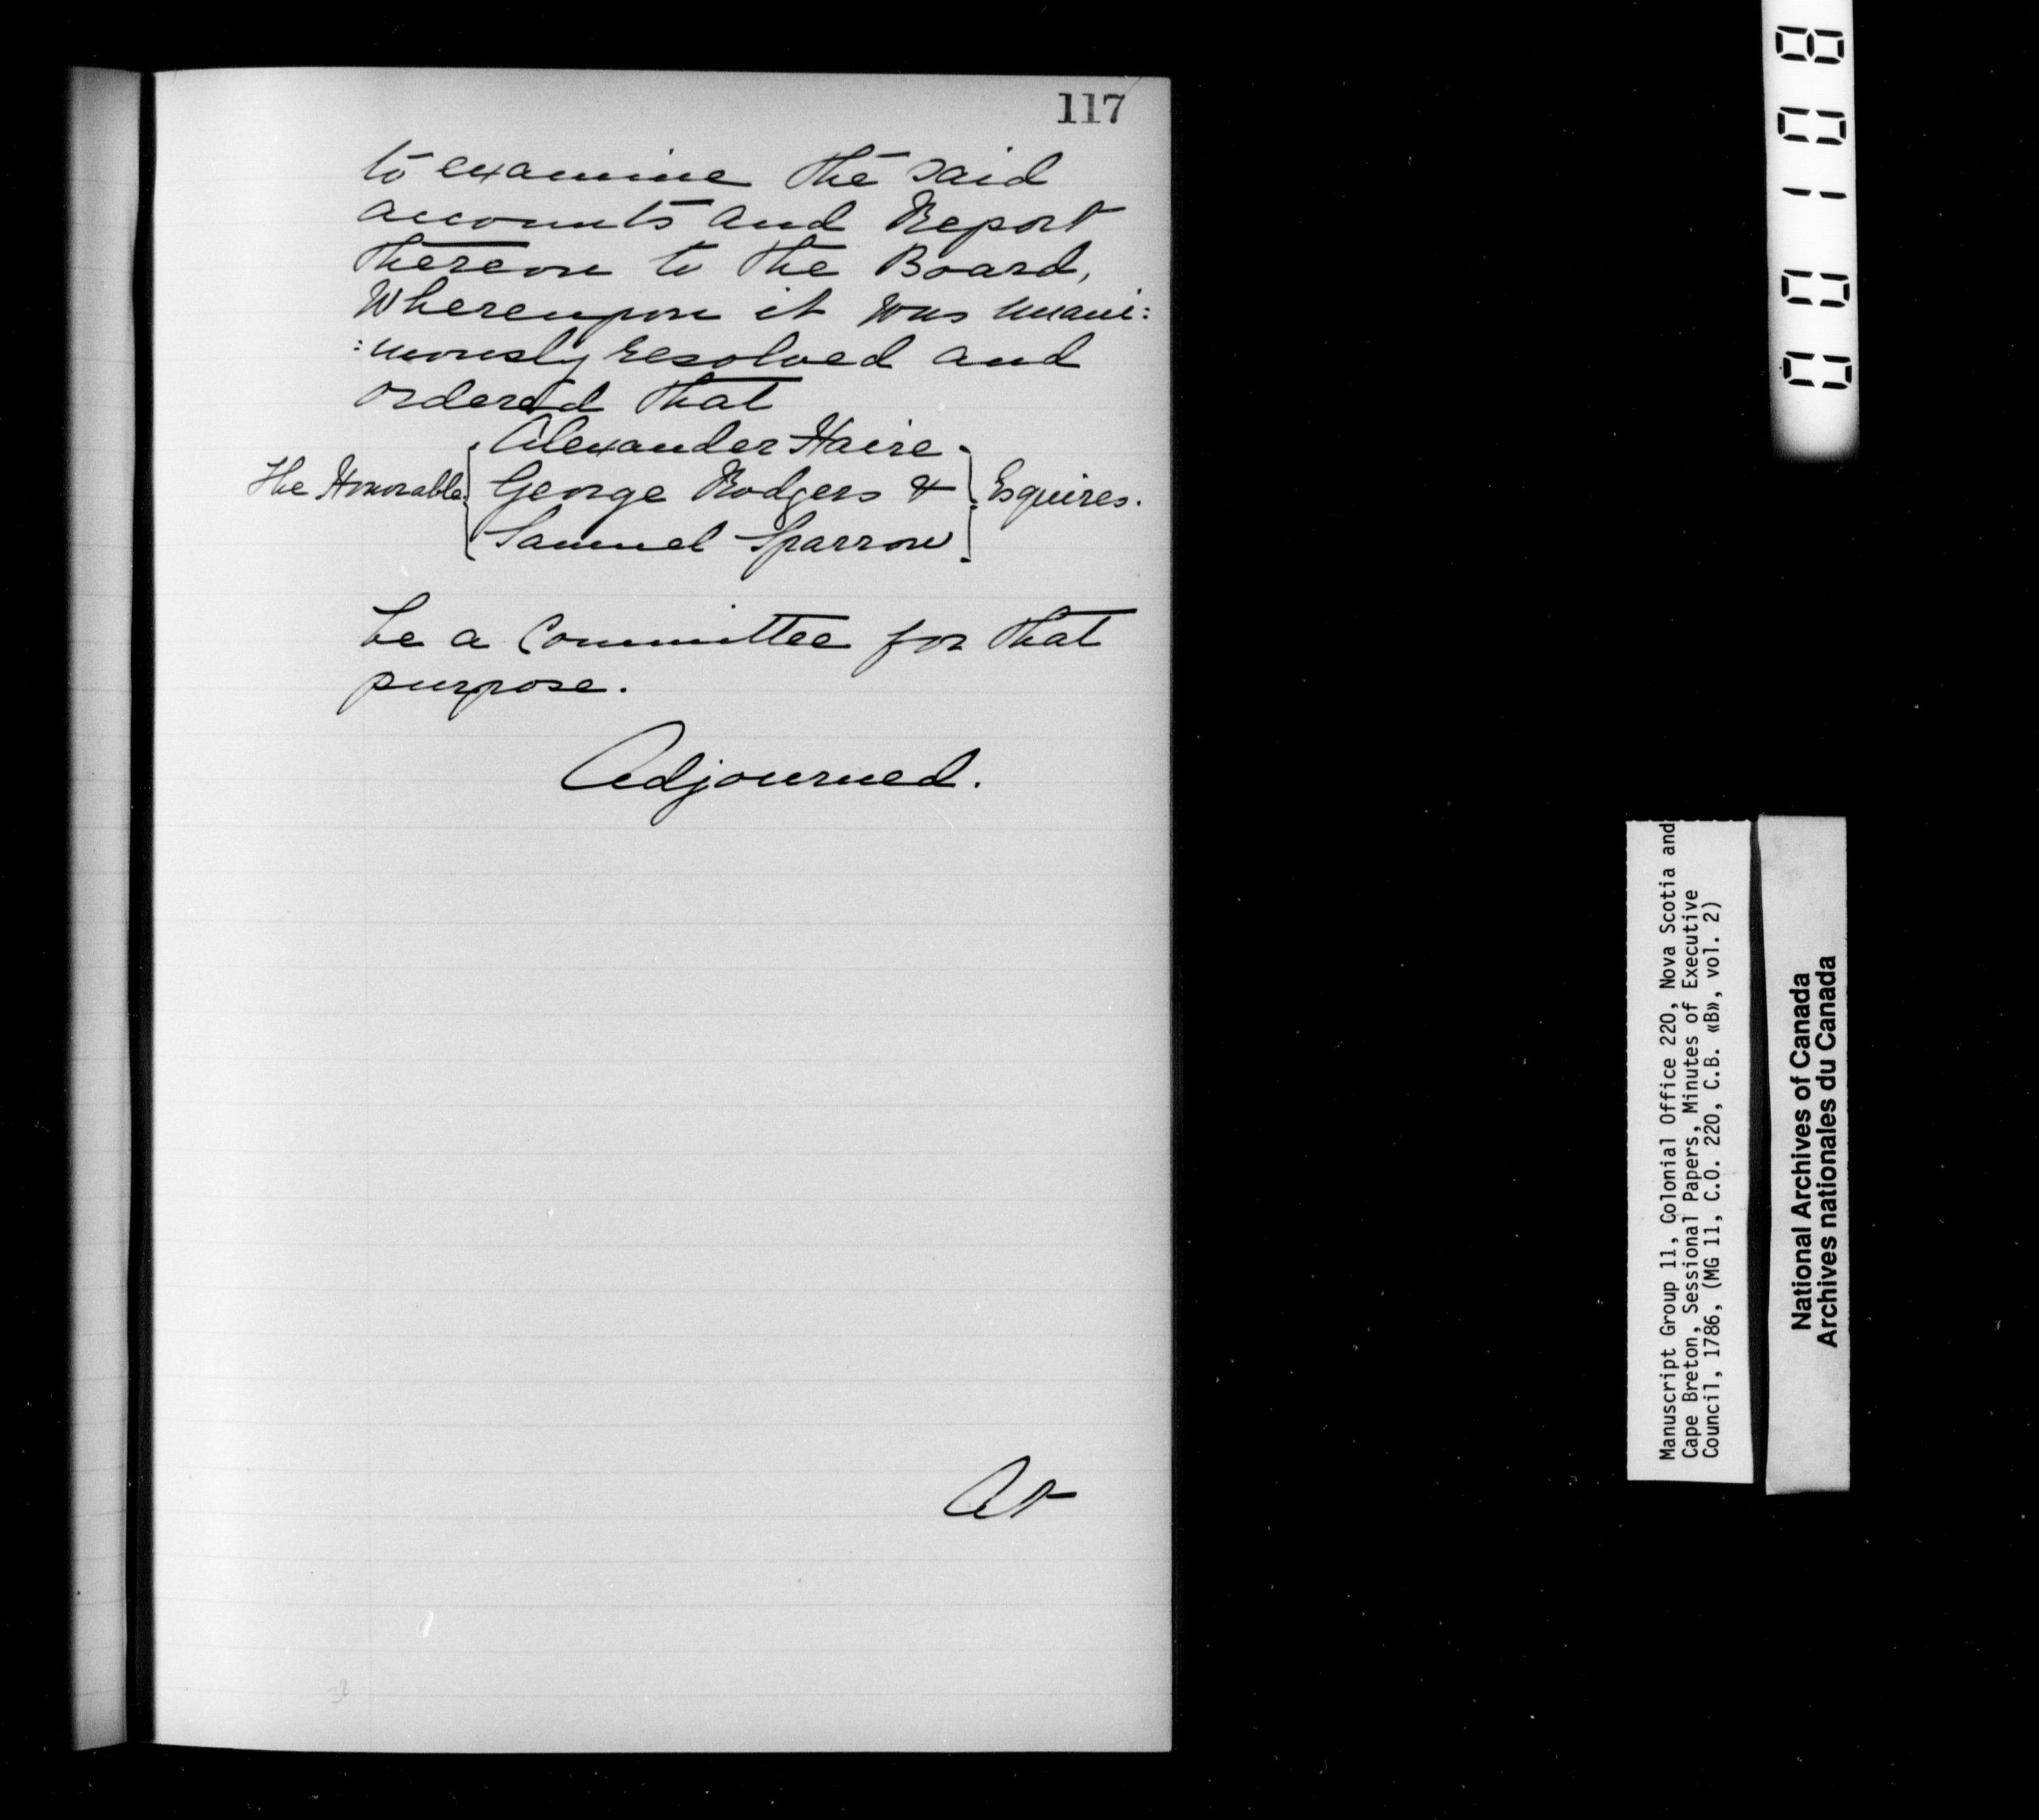 117
to examine the said
accounts and Report
thereon to the Board,
Whereupon it was unani:
:mously resolved and
ordered that
Alexander Haire
The Honorable George Rodgers & Esquires.
Samuel Sparrow
be a Committee for that
purpose.
Adjourned.
At
32
001108
Manuscript Group 11, Colonial Office 220, Nova Scotia and
Cape Breton, Sessional Papers, Minutes of Executive
Council, 1786, (MG 11, C.O. 220, C.B. «B», vol. 2)
National Archives of Canada
Archives nationales du Canada